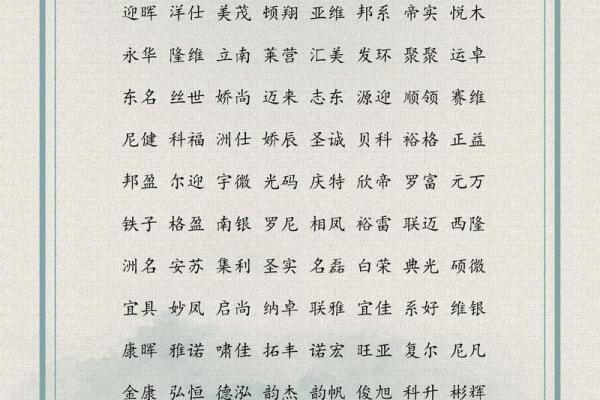 迎晖 洋仕 美茂 顿翔 亚维 邦系 帝实 悦木
永华 隆维 立南 莱营 汇美 发环 聚聚 运卓
东名 丝世 娇尚 迈来 志东 源迎 顺领 赛维
尼健 科福 洲仕 娇辰 圣诚 贝科 裕格 正益
邦盈 尔迎 宇微 光码 庆特 欣帝 罗富 元万
铁子 格盈 南银 罗尼 相凤 裕雷 联迈 西隆
洲名 安苏 集利 圣实 名磊 白荣 典光 硕微
宜具 妙凤 启尚 纳卓 联雅 宜佳 系好 维银
康晖 雅诺 啸佳 拓丰 诺宏 旺亚 复尔 尼凡
金康 弘恒 德泓 韵杰 韵帆 俊旭 科升 彬辉